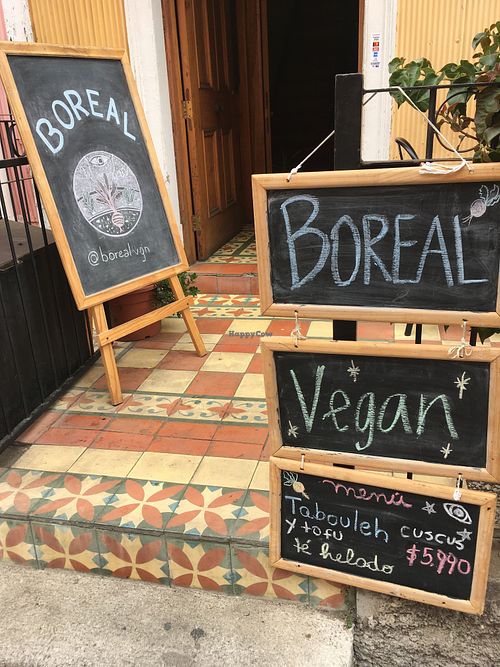 BOREAL
@borealvgn
BOREAL
Vegan
menú
Tabouleh cuscus
y tofu
té helado $5.990
HappyCow